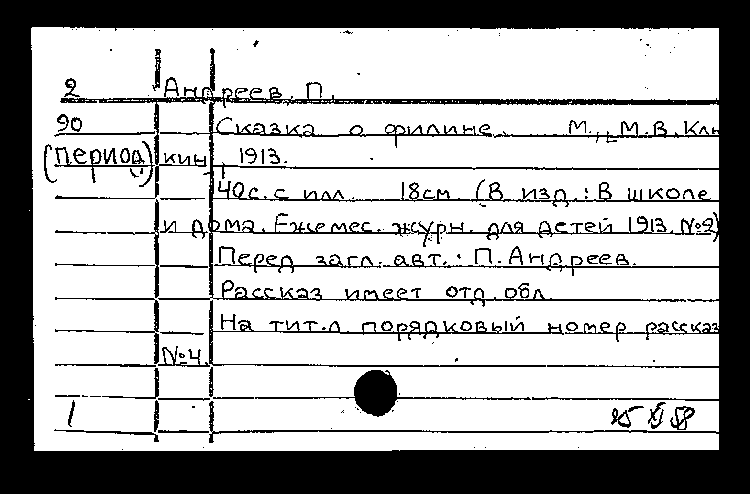 2 Андреев, П.
90 Сказка о филине. М., М.В. Клю
(период) кин, 1913.
40с. с илл. 18см. (В изд.: В школе
и дома. Ежемес. журн. для детей 1913. №9)
Перед загл. авт.: П. Андреев.
Рассказ имеет отд. обл.
На тит. л порядковый номер рассказ
№4.
1